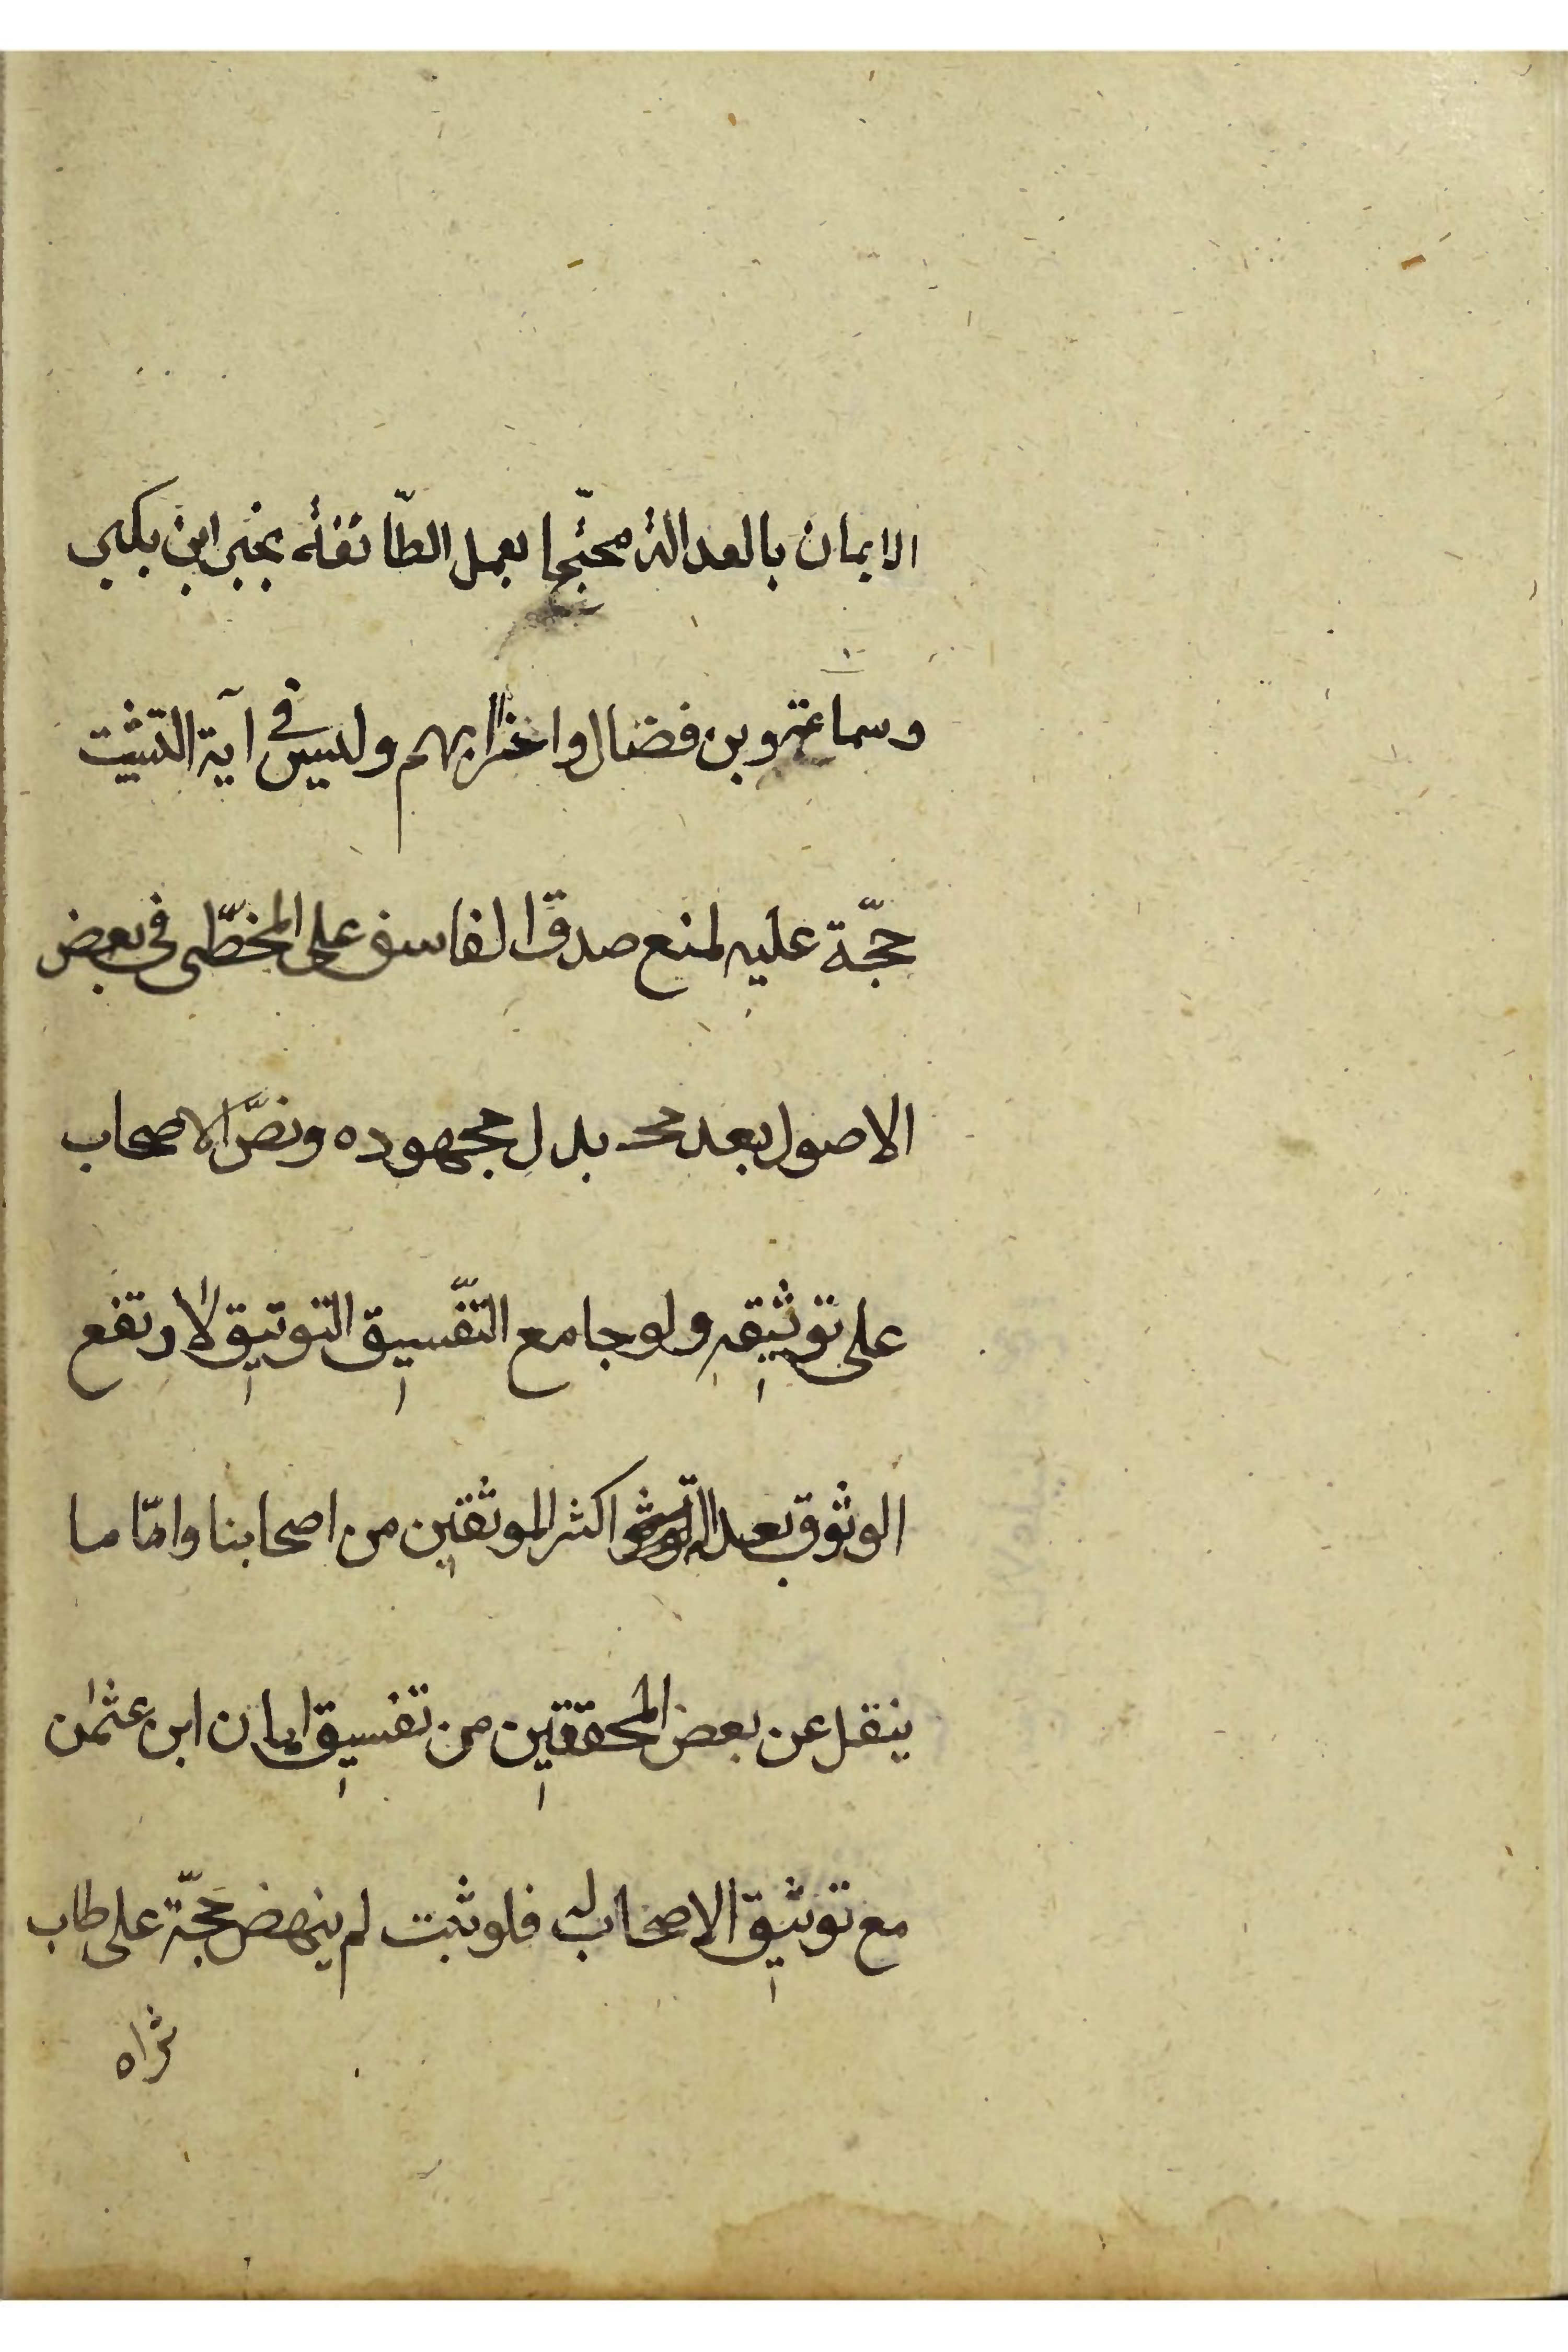 الايمان بالعدالة محتّجا بعمل الطّائفة بخبر ابن بكير
وسماعة وبن فضال واضرابهم وليس في آية التثبيت
حجّة عليه لمنع صدق الفاسق على المخطّى في بعض
الاصول بعد بدل مجهوده ونصّ الاصحاب
على توثيقه ولو جامع التفّسيق التوثيق لارتفع
الوثوق بعدالة اكثر الموثقين من اصحابنا وامّا ما
ينقل عن بعض المحققين من تفسيق ابان ابن عثمن
مع توثيق الاصحاب له فلو ثبت لم ينهض حجّة على طاب
ثراه